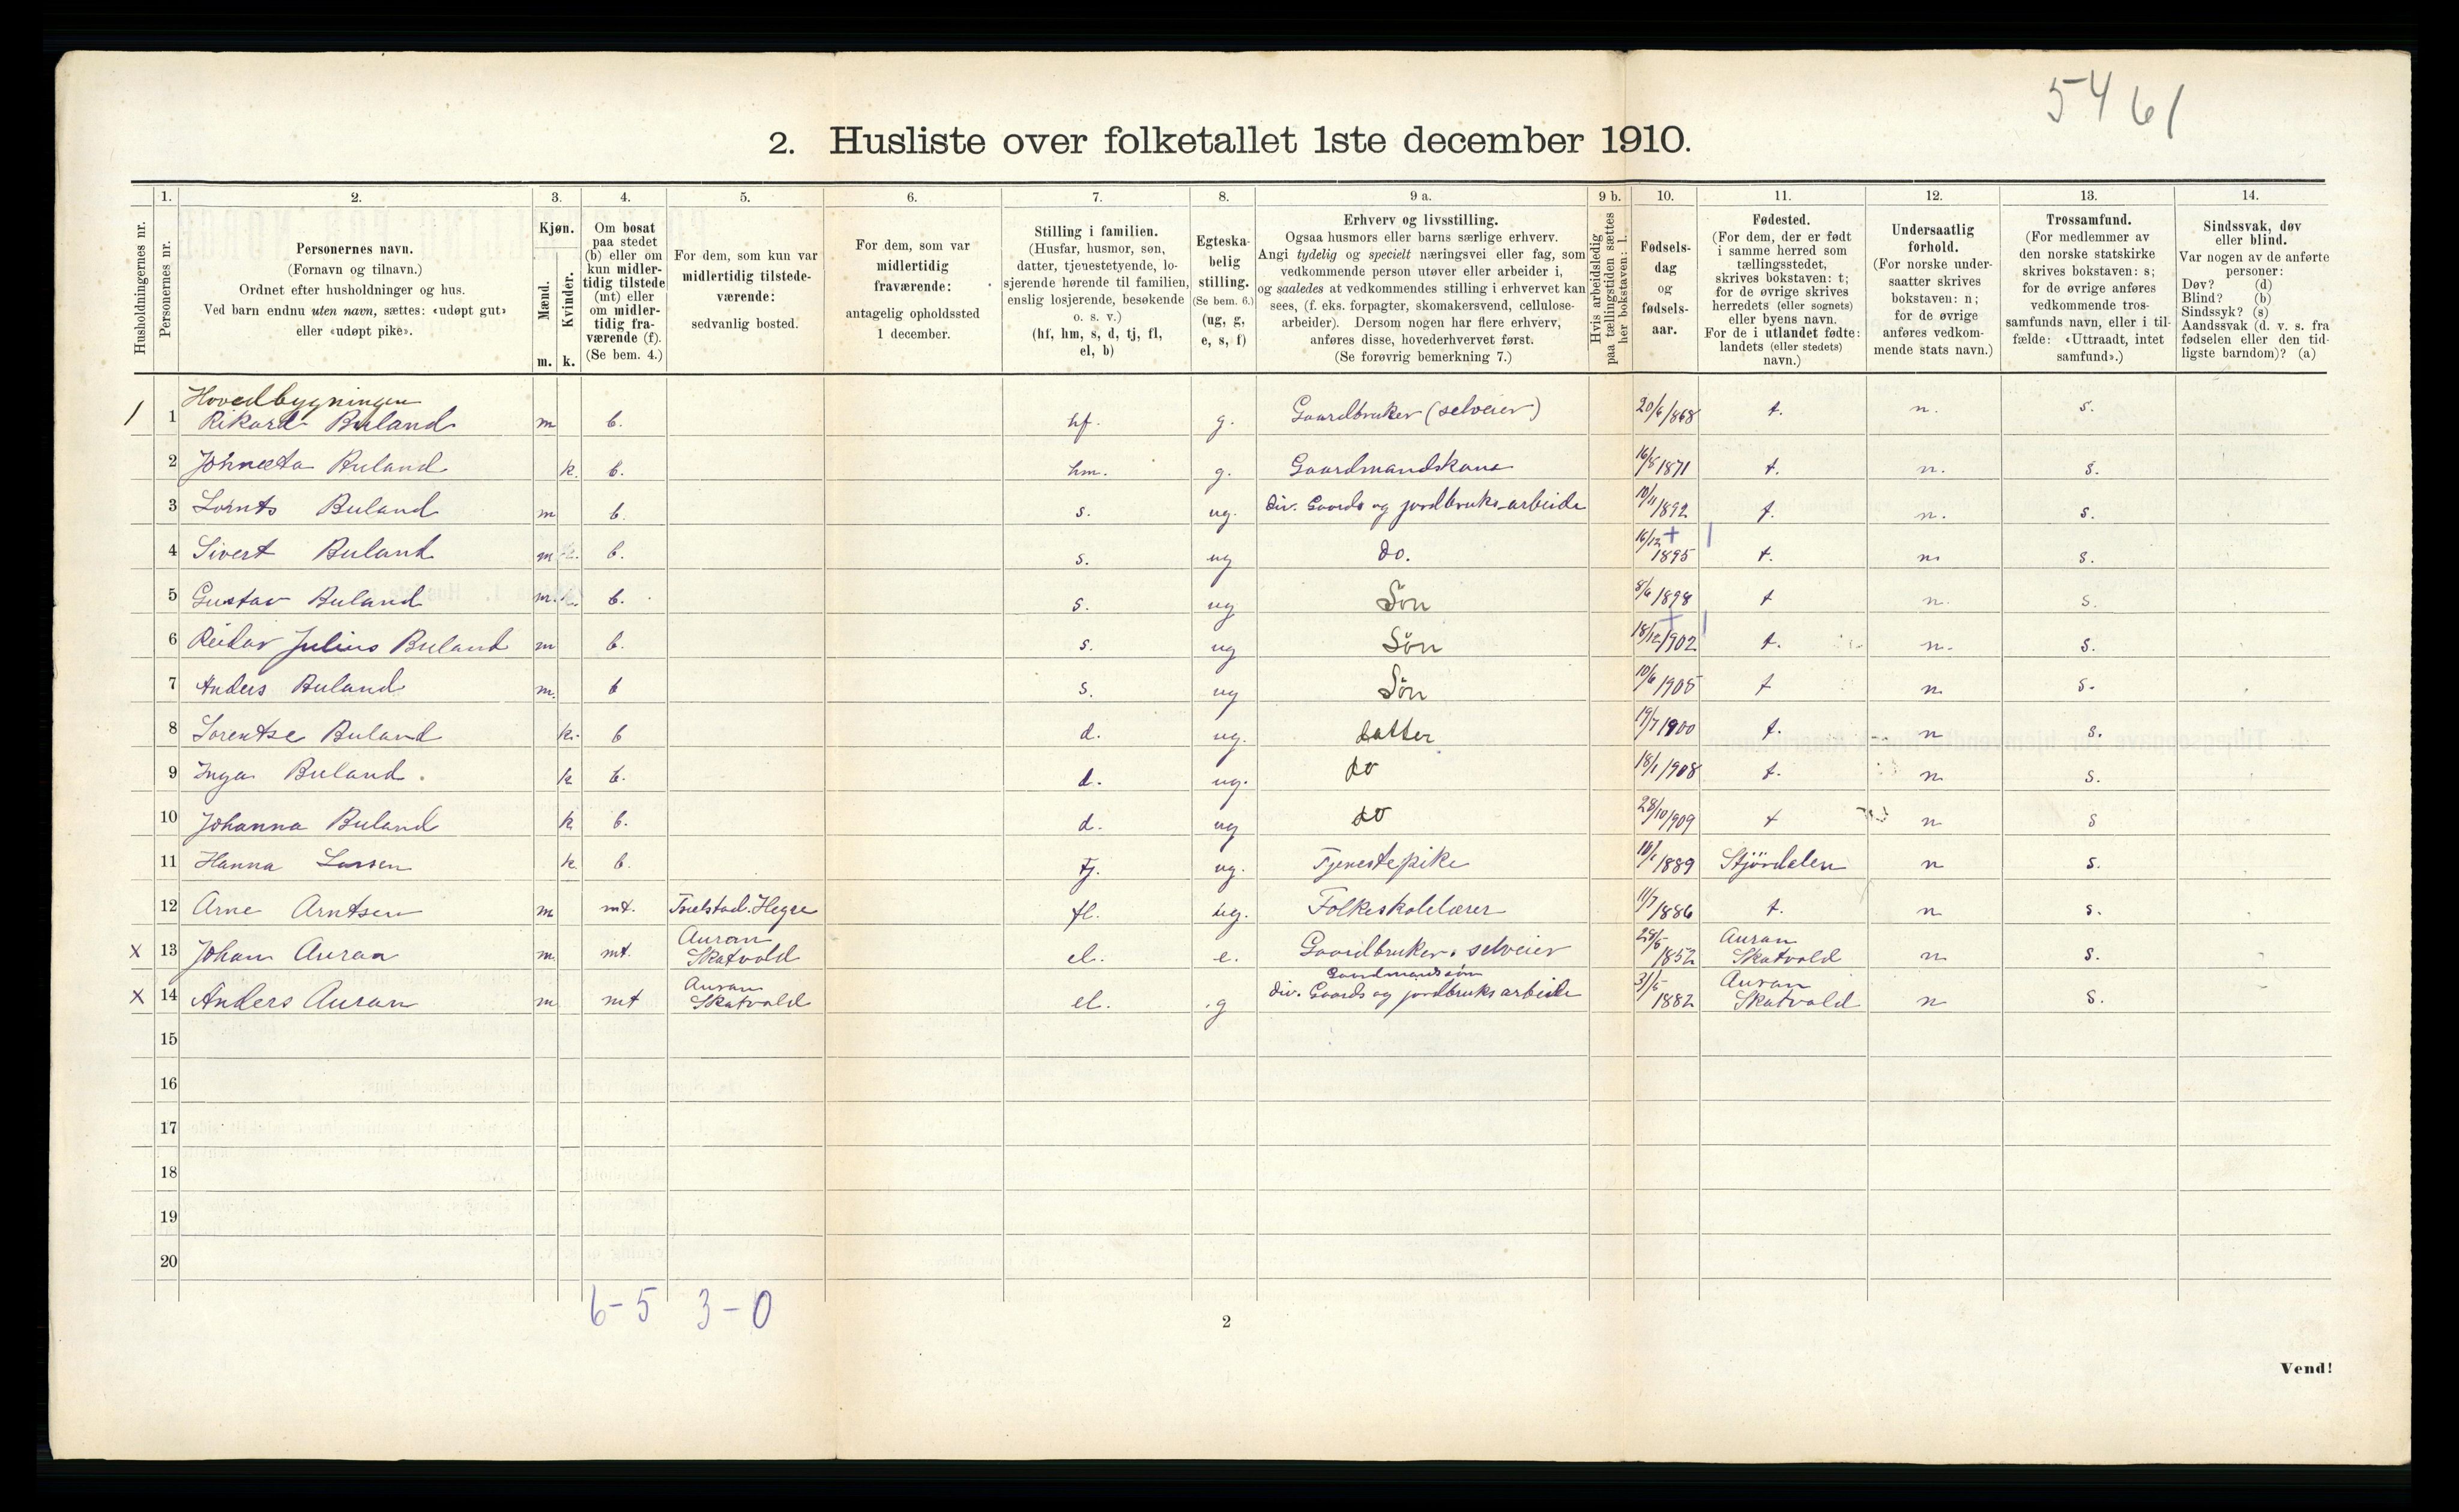 5461
2. Husliste over folketallet 1ste december 1910.
1. 2. 3. 4. 5. 6. 7. 8. 9 a. 9 b. 10. 11. 12. 13. 14.
Husholdningernes nr.
Personernes nr.
Personernes navn.
(Fornavn og tilnavn.)
Ordnet efter husholdninger og hus.
Ved barn endnu uten navn, sættes: «udøpt gut»
eller «udøpt pike».
Kjøn.
Mænd.
m.
Kvinder.
k.
Om bosat
paa stedet
(b) eller om
kun midler-
tidig tilstede
(mt) eller
om midler-
tidig fra-
værende (f).
(Se bem. 4.)
For dem, som kun var
midlertidig tilstede-
værende:
sedvanlig bosted.
For dem, som var
midlertidig
fraværende:
antagelig opholdssted
1 december.
Stilling i familien.
(Husfar, husmor, søn,
datter, tjenestetyende, lo-
sjerende hørende til familien,
enslig losjerende, besøkende
o. s. v.)
(hf, hm, s, d, tj, fl,
el, b)
Egteska-
belig
stilling.
(Se bem. 6.)
(ug, g,
e, s, f)
Erhverv og livsstilling.
Ogsaa husmors eller barns særlige erhverv.
Angi tydelig og specielt næringsvei eller fag, som
vedkommende person utøver eller arbeider i,
og saaledes at vedkommendes stilling i erhvervet kan
sees, (f. eks. forpagter, skomakersvend, cellulose-
arbeider). Dersom nogen har flere erhverv,
anføres disse, hovederhvervet først.
(Se forøvrig bemerkning 7.)
Hvis arbeidsledig
paa tællingstiden sættes
her bokstaven: l.
Fødsels-
dag
og
fødsels-
aar.
Fødested.
(For dem, der er født
i samme herred som
tællingsstedet,
skrives bokstaven: t;
for de øvrige skrives
herredets (eller sognets)
eller byens navn.
For de i utlandet fødte:
landets (eller stedets)
navn.)
Undersaatlig
forhold.
(For norske under-
saatter skrives
bokstaven: n;
for de øvrige
anføres vedkom-
mende stats navn.)
Trossamfund.
(For medlemmer av
den norske statskirke
skrives bokstaven: s;
for de øvrige anføres
vedkommende tros-
samfunds navn, eller i til-
fælde: «Uttraadt, intet
samfund».)
Sindssvak, døv
eller blind.
Var nogen av de anførte
personer:
Døv? (d)
Blind? (b)
Sindssyk? (s)
Aandssvak (d. v. s. fra
fødselen eller den tid-
ligste barndom)? (a)
Hovedbygningen
1 1 Rikard Buland m b. hf. g. Gaardbruker (selveier) 20/6/868 t. n. s.
2 Johneta Buland k. b. hm. g. Gaardmandskone 16/8 1871 t. n. s.
3 Lornts Buland m b. s. ug. Div. Gaards og jordbruks-arbeide 10/11 1892 t. n. s.
4 Sivert Buland m b. s. ug do. 16/12 1895 t. n. s.
5 Gustav Buland m. b. s. ug Søn 8/6 1898 t n. s.
6 Reidar Julius Buland m b. s. ug Søn 18/12/902 t. n. s.
7 Anders Buland m. b s. ug Søn 10/6 1905 t n s.
8 Lorentse Buland k. b d. ug. datter 19/7 1900 t. n s.
9 Inga Buland. k b. d. ug. do 18/1 1908 t. n s.
10 Johanna Buland k b. d. ug do 28/10/909 t n s
11 Hanna Larsen k b. tj. ug. Tjenestepike 1889 Stjördalen n s.
12 Arne Arntsen m mt. Hegre fl. ug. Folkeskolelærer 11/7 1886 t. n s.
x 13 Johan Auran m mt. Auran Skatvold el. e. Gaardbruker. selveier 1852 Auran Skatvold n s.
x 14 Anders Auran m mt Auran Skatvold el. g Gaardmandssøn div. Gaards og jordbruks arbeide 31/5 1882 Auran Skatvold n s.
15
16
17
18
19
20
6-5 3-0
2
Vend!